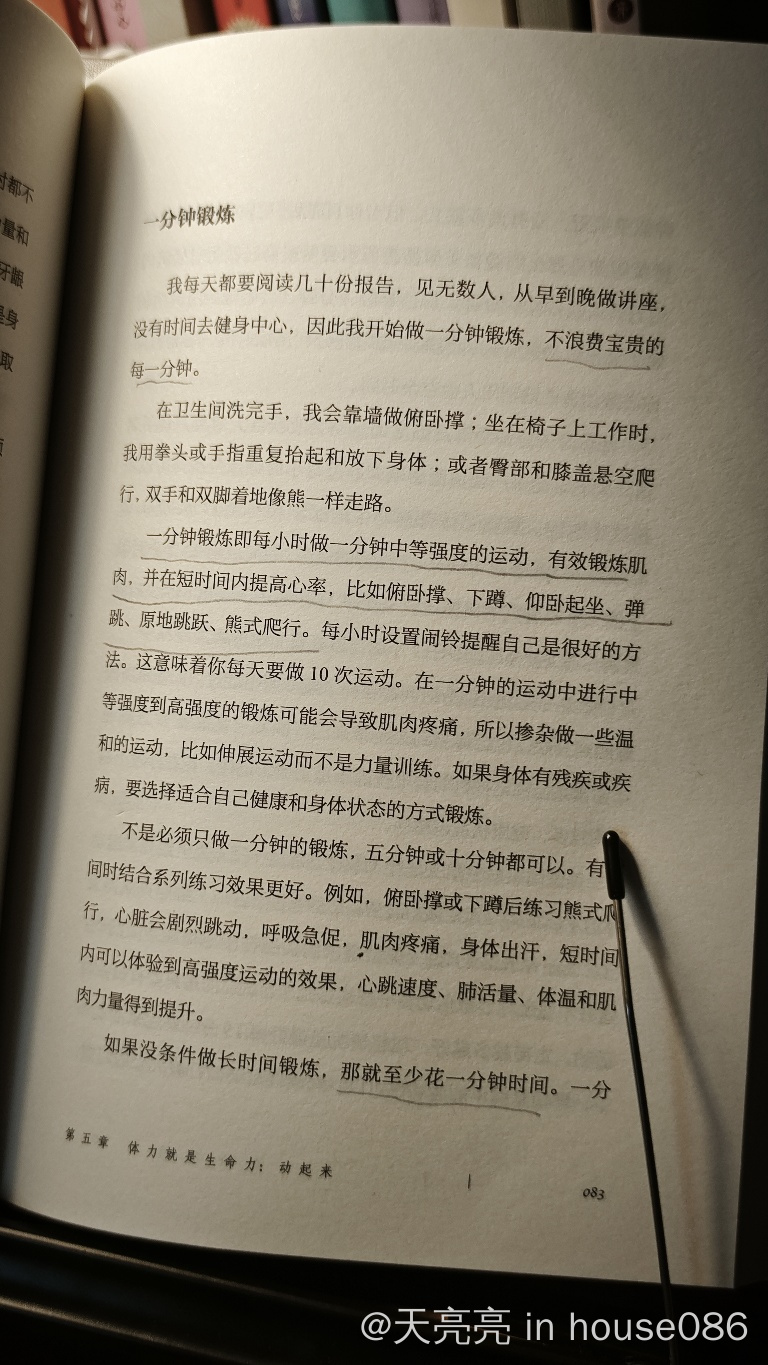 时都不
量和
牙龈
是身
取
一分钟锻炼
我每天都要阅读几十份报告，见无数人，从早到晚做讲座，
没有时间去健身中心，因此我开始做一分钟锻炼，不浪费宝贵的
每一分钟。
在卫生间洗完手，我会靠墙做俯卧撑；坐在椅子上工作时，
我用拳头或手指重复抬起和放下身体；或者臀部和膝盖悬空爬
行，双手和双脚着地像熊一样走路。
一分钟锻炼即每小时做一分钟中等强度的运动，有效锻炼肌
肉，并在短时间内提高心率，比如俯卧撑、下蹲、仰卧起坐、弹
跳、原地跳跃、熊式爬行。每小时设置闹铃提醒自己是很好的方
法。这意味着你每天要做 10 次运动。在一分钟的运动中进行中
等强度到高强度的锻炼可能会导致肌肉疼痛，所以掺杂做一些温
和的运动，比如伸展运动而不是力量训练。如果身体有残疾或疾
病，要选择适合自己健康和身体状态的方式锻炼。
不是必须只做一分钟的锻炼，五分钟或十分钟都可以。有
间时结合系列练习效果更好。例如，俯卧撑或下蹲后练习熊式爬
行，心脏会剧烈跳动，呼吸急促，肌肉疼痛，身体出汗，短时间
内可以体验到高强度运动的效果，心跳速度、肺活量、体温和肌
肉力量得到提升。
如果没条件做长时间锻炼，那就至少花一分钟时间。一分
第五章 体力就是生命力：动起来 | 083
@天亮亮 in house086